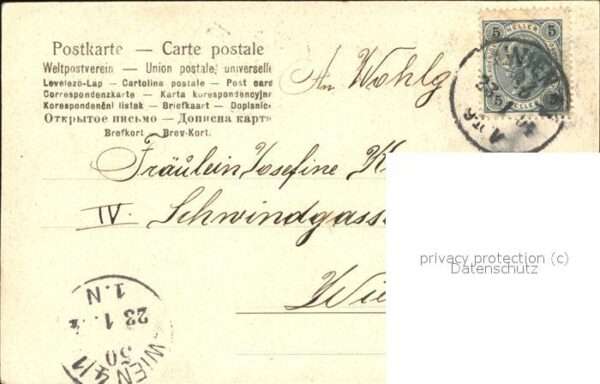 Postkarte — Carte postale
Weltpostverein — Union postale universelle
Levelező-Lap — Cartolina postale — Post card
Correspondenzkarte — Karta korespondencyjna
Korespondenční lístek — Briefkaart — Dopisnica
Открытое письмо — Дописна карта
Brefkort — Brev-Kort.
An Wohlg
5 HELLER 5
WIEN
5
Fräulein Josefine K
IV. Schwindgass
Wie
privacy protection (c)
Datenschutz
1.N
23 1.
50
WIEN 4/1